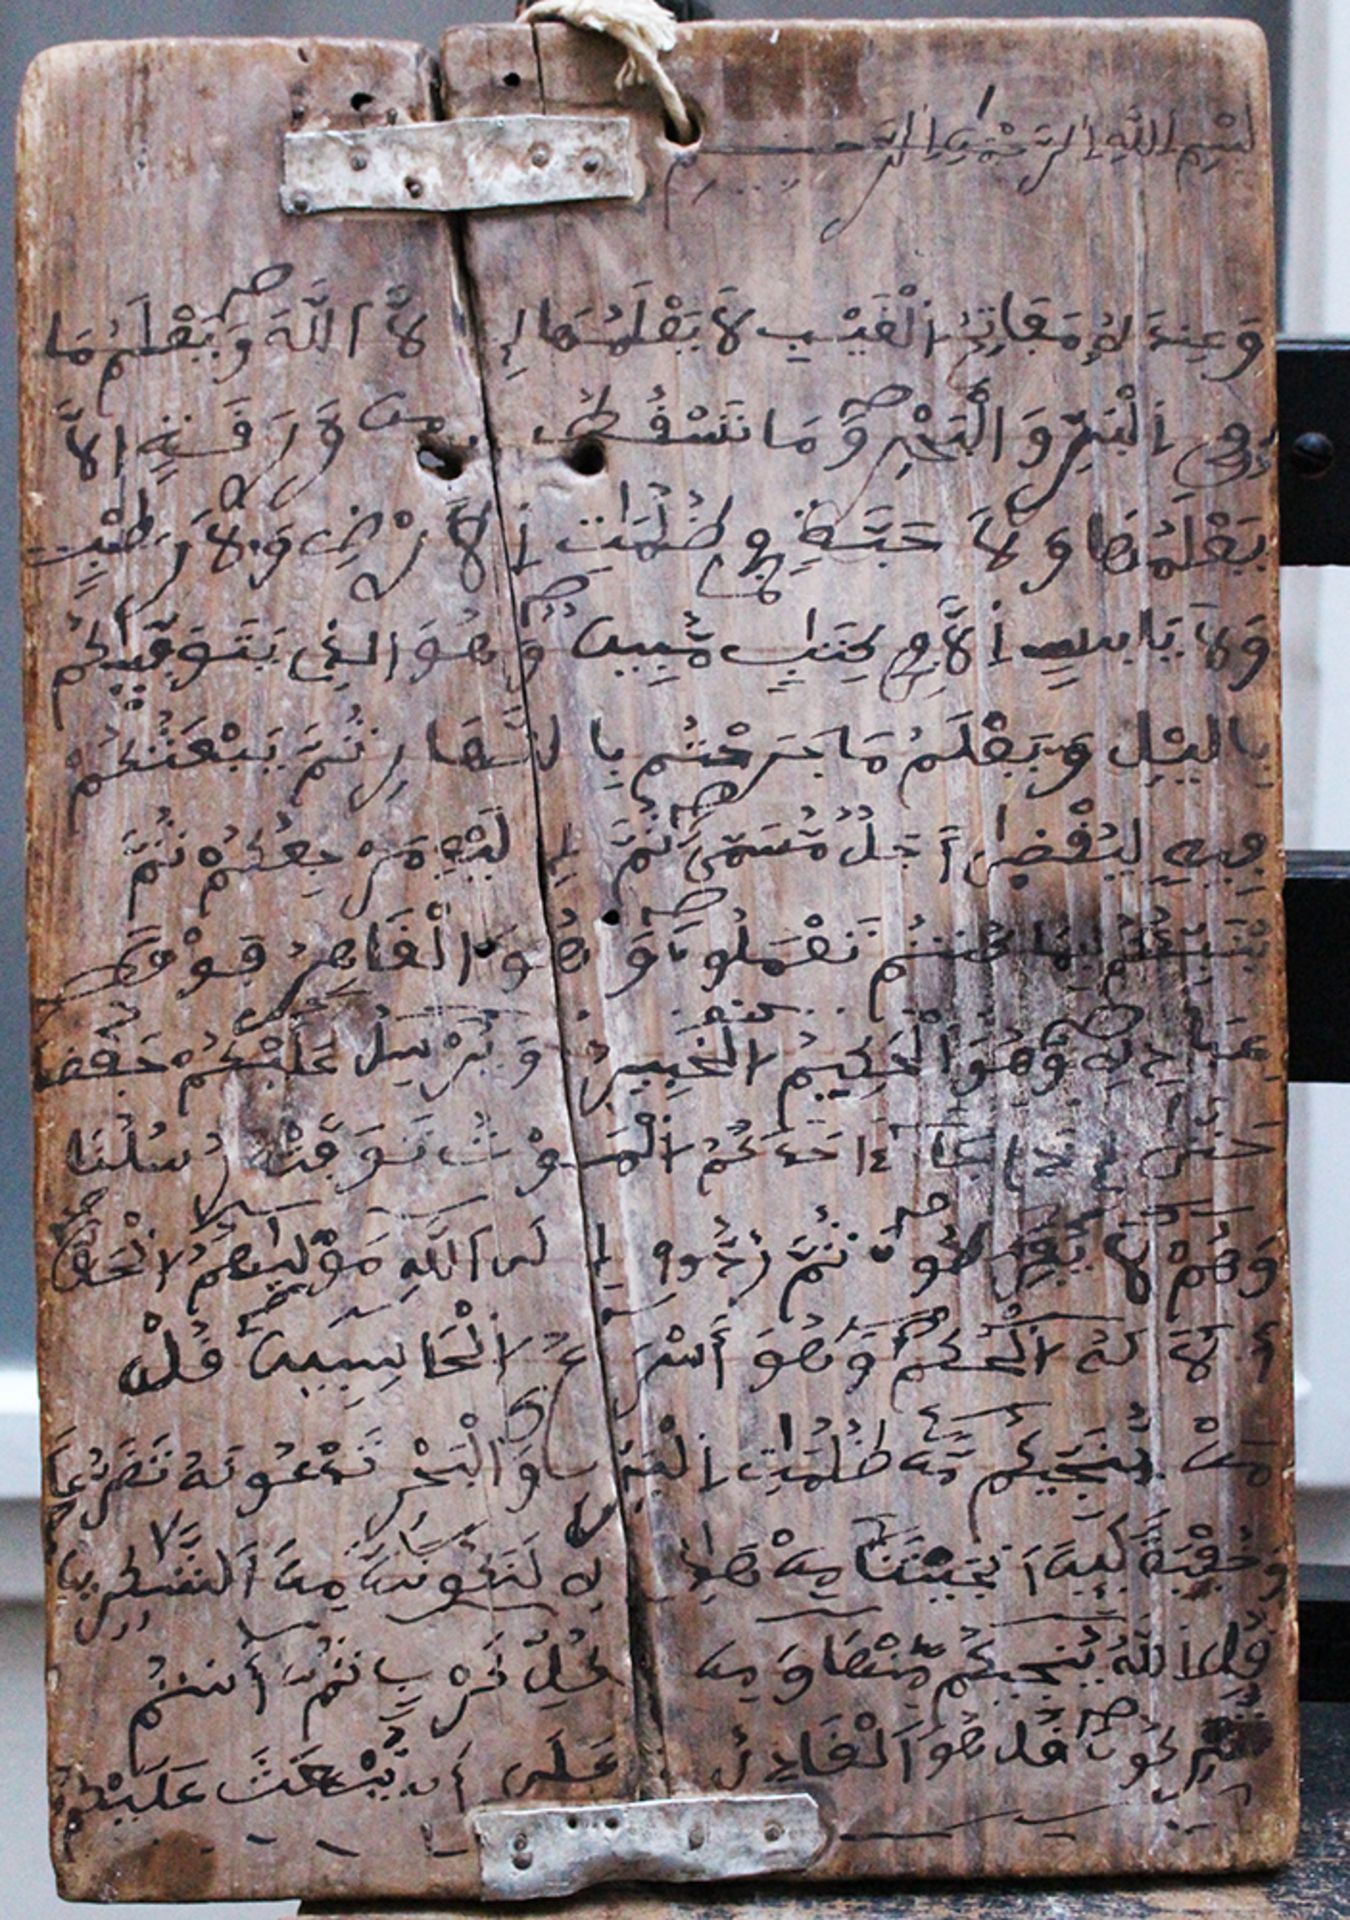 بسم الله الرحمن الرحيم
وعنده مفاتح الغيب لا يعلمها إ لا الله ويعلم ما
في البر والبحر وما تسقط من ورقة إلا
يعلمها ولا حبة في ظلمت الارض ولا رطب
ولا يابس الا في كتب مبين وهو الذي يتوفيكم
باليل ويعلم ما جرحتم بالنهار ثم يبعثكم
فيه ليقضى أجل مسمى ثم إ ليه مرجعكم ثم
ينبئكم بما كنتم تعملون وهو القاهر فوق
عباده وهو الحكيم الخبير ويرسل عليكم حفظة
حتى إذا جاء احدكم الموت توفته رسلنا
وهم لا يفرطون ثم ردوا إ لى الله موليهم الحق
ألا له الحكم وهو أسرع الحاسبين قل
من ينجيكم من ظلمت البر والبحر تدعونه تضرعا
وخفية لين أنجيتنا من هذه لنكونن من الشكرين
قل الله ينجيكم منها ومن كل كرب ثم أنتم
تشركون قل هو القادر على أن يبعث عليكم